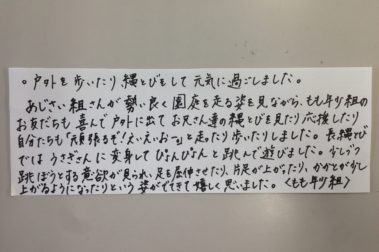 。戸外を歩いたり、縄とびをして元気に過ごしました。
あじさい組さんが勢い良く園庭を走る姿を見ながら、もも年少組の
お友だちも喜んで戸外に出てお兄さん達の縄とびを見たり応援したり
自分たちも「頑張るぞ!えいえいおー」と走ったり歩いたりしました。長縄とび
ではうさぎさんに変身してぴょんぴょんと跳んで遊びました。少しづつ
跳ぼうとする意欲が見られ、足を屈伸させたり、片足が上がったり、かかとが少し
上がるようになったりという姿がでてきて嬉しく思いました。〈もも年少組〉